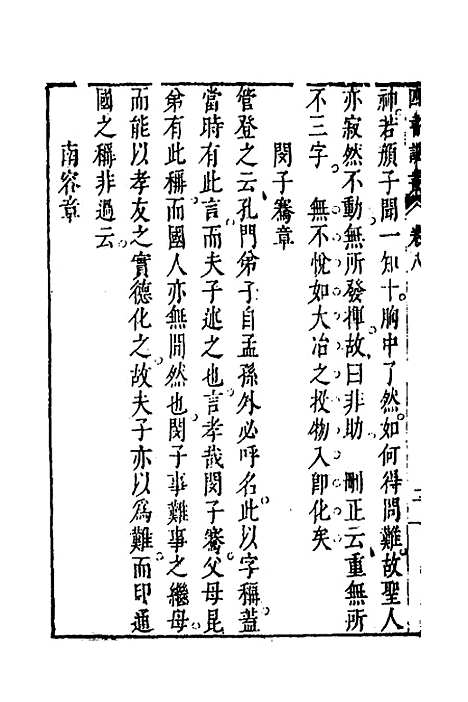 卷八
神若顏子聞一知十胸中了然如何得問難故聖人
亦寂然不動無所發揮故曰非助　刪正云重無所
不三字　無不悅如大冶之投物入卽化矣
閔子騫章
管登之云孔門弟子自孟孫外必呼名此以字稱蓋
當時有此言而夫子述之也言孝哉閔子騫父母昆
弟有此稱而國人亦無閒然也閔子事難事之繼母
而能以孝友之實德化之故夫子亦以爲難而印通
國之稱非過云
南容章